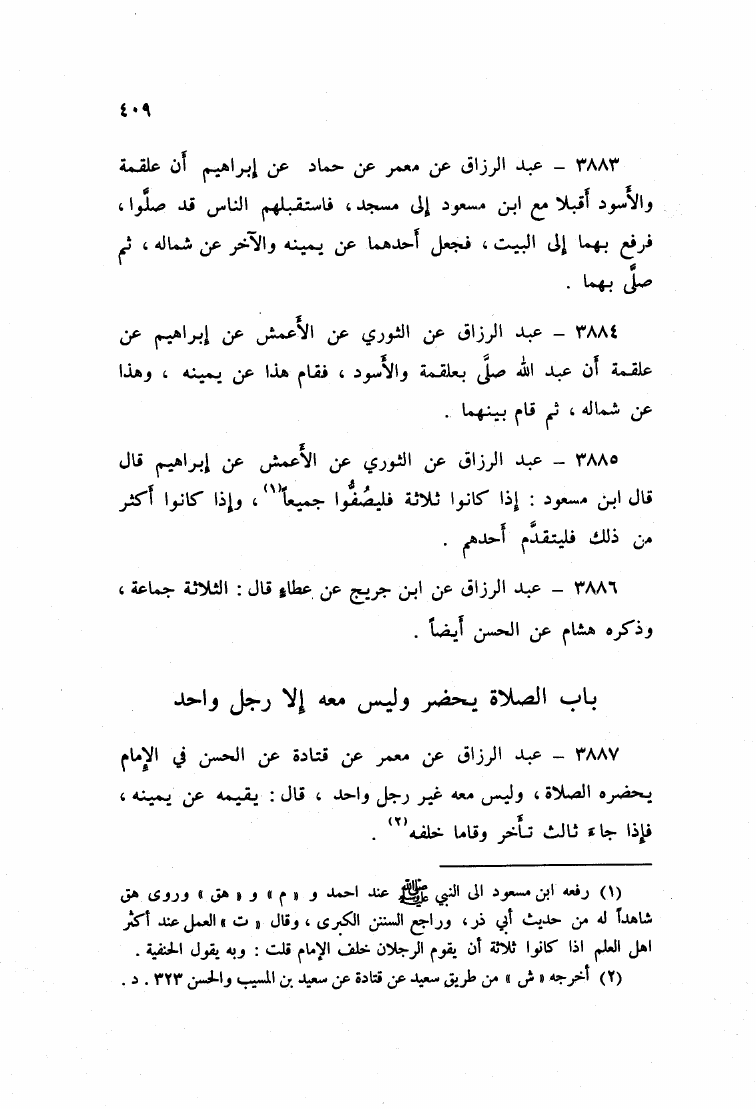 ٤٠٩
٣٨٨٣ – عبد الرزاق عن معمر عن حماد عن إبراهيم أن علقمة
والأسود أقبلا مع ابن مسعود إلى مسجد، فاستقبلهم الناس قد صلَّوا،
فرفع بهما إلى البيت، فجعل أحدهما عن يمينه والآخر عن شماله، ثم
صلَّى بهما .
٣٨٨٤ – عبد الرزاق عن الثوري عن الأعمش عن إبراهيم عن
علقمة أن عبد الله صلَّى بعلقمة والأسود، فقام هذا عن يمينه ، وهذا
عن شماله، ثم قام بينهما .
٣٨٨٥ – عبد الرزاق عن الثوري عن الأعمش عن إبراهيم قال
قال ابن مسعود : إذا كانوا ثلاثة فليصُفُّوا جميعاً(١)، وإذا كانوا أكثر
من ذلك فليتقدَّم أحدهم .
٣٨٨٦ – عبد الرزاق عن ابن جريج عن عطاء قال : الثلاثة جماعة،
وذكره هشام عن الحسن أيضاً .
باب الصلاة يحضر وليس معه إلا رجل واحد
٣٨٨٧ – عبد الرزاق عن معمر عن قتادة عن الحسن في الإمام
يحضره الصلاة، وليس معه غير رجل واحد ، قال : يقيمه عن يمينه،
فإذا جاء ثالث تأخر وقاما خلفه(٢) .
(١) رفعه ابن مسعود الى النبي ﷺ عند احمد و « م » و « هق » وروى هق
شاهداً له من حديث أبي ذر، وراجع السنن الكبرى ، وقال « ت » العمل عند أكثر
اهل العلم اذا كانوا ثلاثة أن يقوم الرجلان خلف الإمام قلت : وبه يقول الحنفية .
(٢) أخرجه « ش » من طريق سعيد عن قتادة عن سعيد بن المسيب والحسن ٣٢٣ . د .